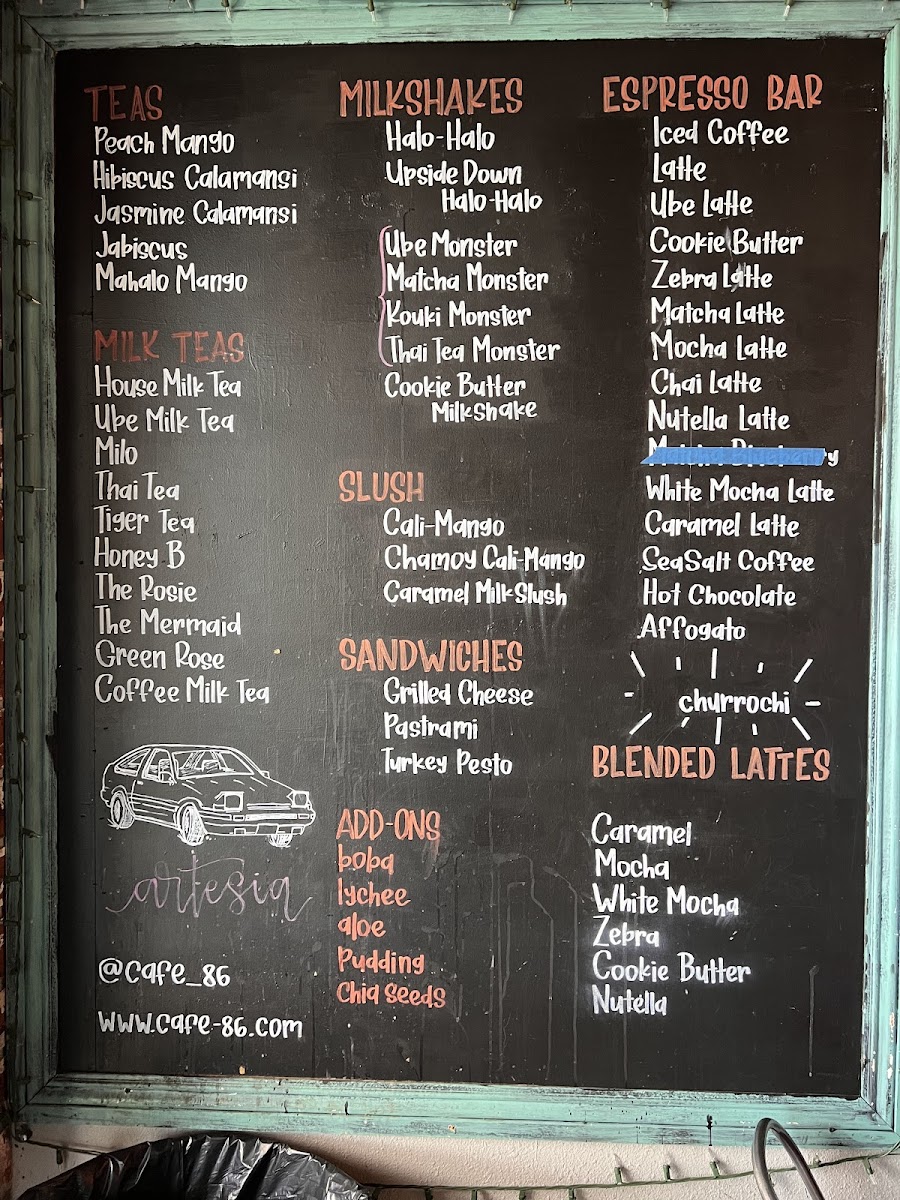 TEAS
Peach Mango
Hibiscus Calamansi
Jasmine Calamansi
Jabiscus
Mahalo Mango
MILK TEAS
House Milk Tea
Ube Milk Tea
Milo
Thai Tea
Tiger Tea
Honey B
The Rosie
The Mermaid
Green Rose
Coffee Milk Tea
artesia
@cafe_86
www.cafe-86.com
MILKSHAKES
Halo-Halo
Upside Down
Halo-Halo
Ube Monster
Matcha Monster
Kouki Monster
Thai Tea Monster
Cookie Butter
Milkshake
SLUSH
Cali-Mango
Chamoy Cali-Mango
Caramel Milk Slush
SANDWICHES
Grilled Cheese
Pastrami
Turkey Pesto
ADD-ONS
boba
lychee
aloe
Pudding
Chia Seeds
ESPRESSO BAR
Iced Coffee
Latte
Ube Latte
Cookie Butter
Zebra Latte
Matcha Latte
Mocha Latte
Chai Latte
Nutella Latte
White Mocha Latte
Caramel Latte
SeaSalt Coffee
Hot Chocolate
Affogato
churrochi
BLENDED LATTES
Caramel
Mocha
White Mocha
Zebra
Cookie Butter
Nutella